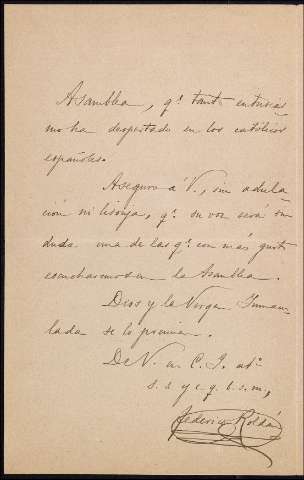 Asamblea, q.e tanto entusias
mo ha despertado en los católicos
españoles.
Aseguro á V., sin adula
ción ni lisonja, q.e su voz será sin
duda una de las q.e con más gusto
escucharemos en la Asamblea.
Dios y la Virgen Inmacu
lada se lo premien.
De V. en C. J. at.o
s. s. y c. q. b. s. m,
Federico Roldán